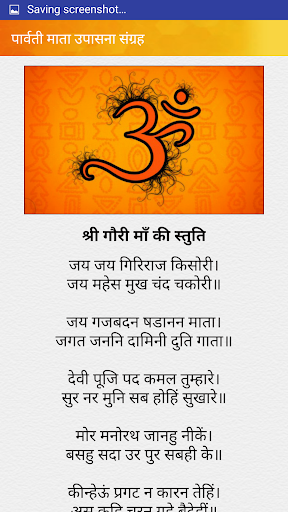 Saving screenshot...
पार्वती माता उपासना संग्रह
ॐ
श्री गौरी माँ की स्तुति
जय जय गिरिराज किसोरी।
जय महेस मुख चंद चकोरी॥
जय गजबदन षडानन माता।
जगत जननि दामिनी दुति गाता॥
देवी पूजि पद कमल तुम्हारे।
सुर नर मुनि सब होहिं सुखारे॥
मोर मनोरथ जानहु नीकें।
बसहु सदा उर पुर सबही के॥
कीन्हेऊं प्रगट न कारन तेहिं।
अस कहि चरन गहे बैदेहीं॥